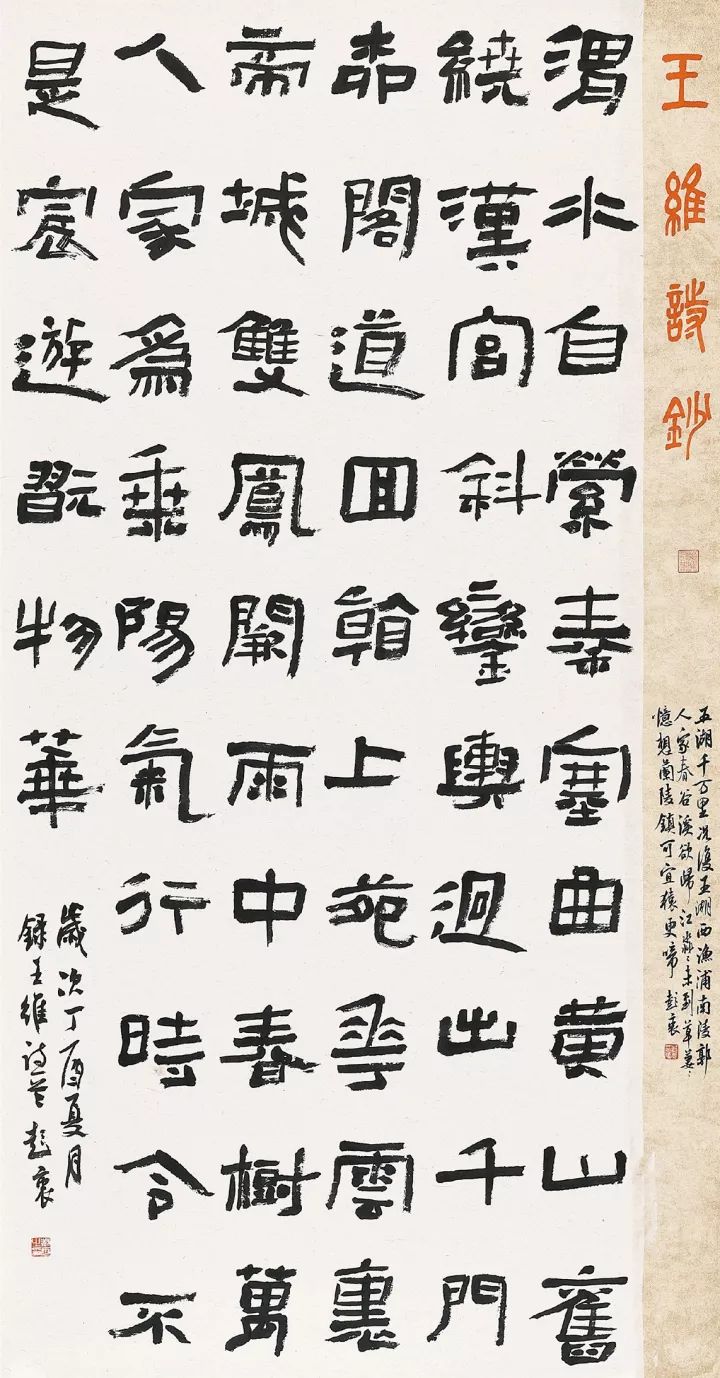 王維詩鈔
五湖千万里况復五湖西渔浦南陵郭
人家春谷溪欲歸江淼〻未到草萋〻
憶想蘭陵鎮可宜猿更啼
渭水自縈秦塞曲黄山舊
繞漢宮斜鑾輿迥出千門
柳閣道回看上苑花雲裏
帝城雙鳳闕雨中春樹萬
人家爲乗陽氣行時令不
是宸遊翫物華
歲次丁酉夏月
錄王維诗